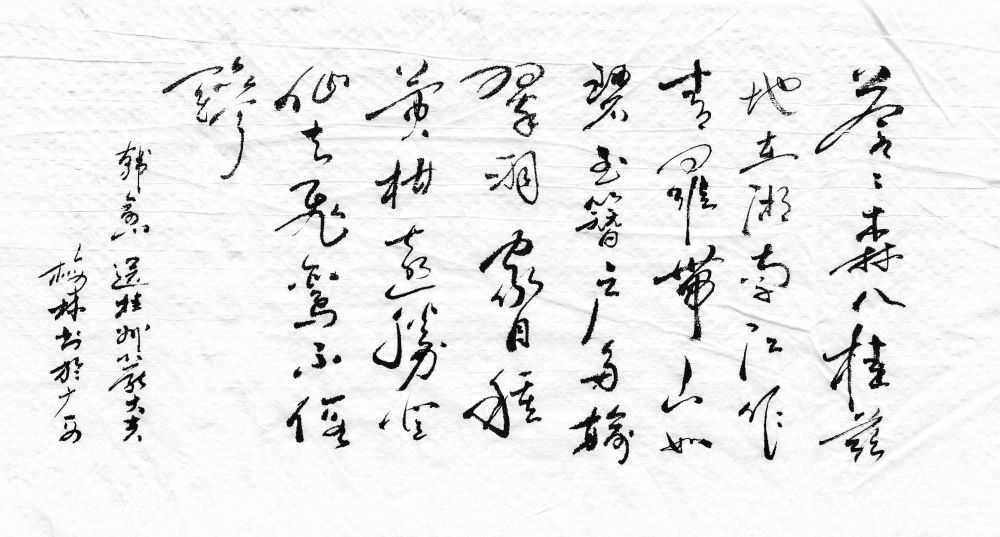 蒼〻森八桂兹
地在湘南江作
青羅帶山如
碧玉簪户多輸
翠羽家自種
黄柑遠勝登
仙去飛鸞不假
驂
韓愈 送桂州嚴大夫
林書於